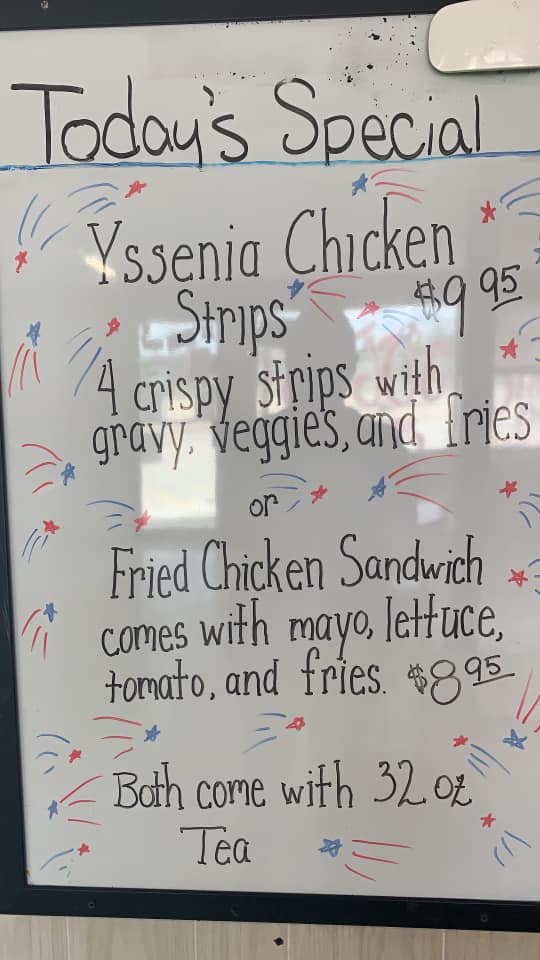 Today's Special
Yssenia Chicken
Strips $9 95
4 crispy strips with
gravy, veggies, and fries
or
Fried Chicken Sandwich
comes with mayo, lettuce,
tomato, and fries. $8 95
Both come with 32 oz
Tea